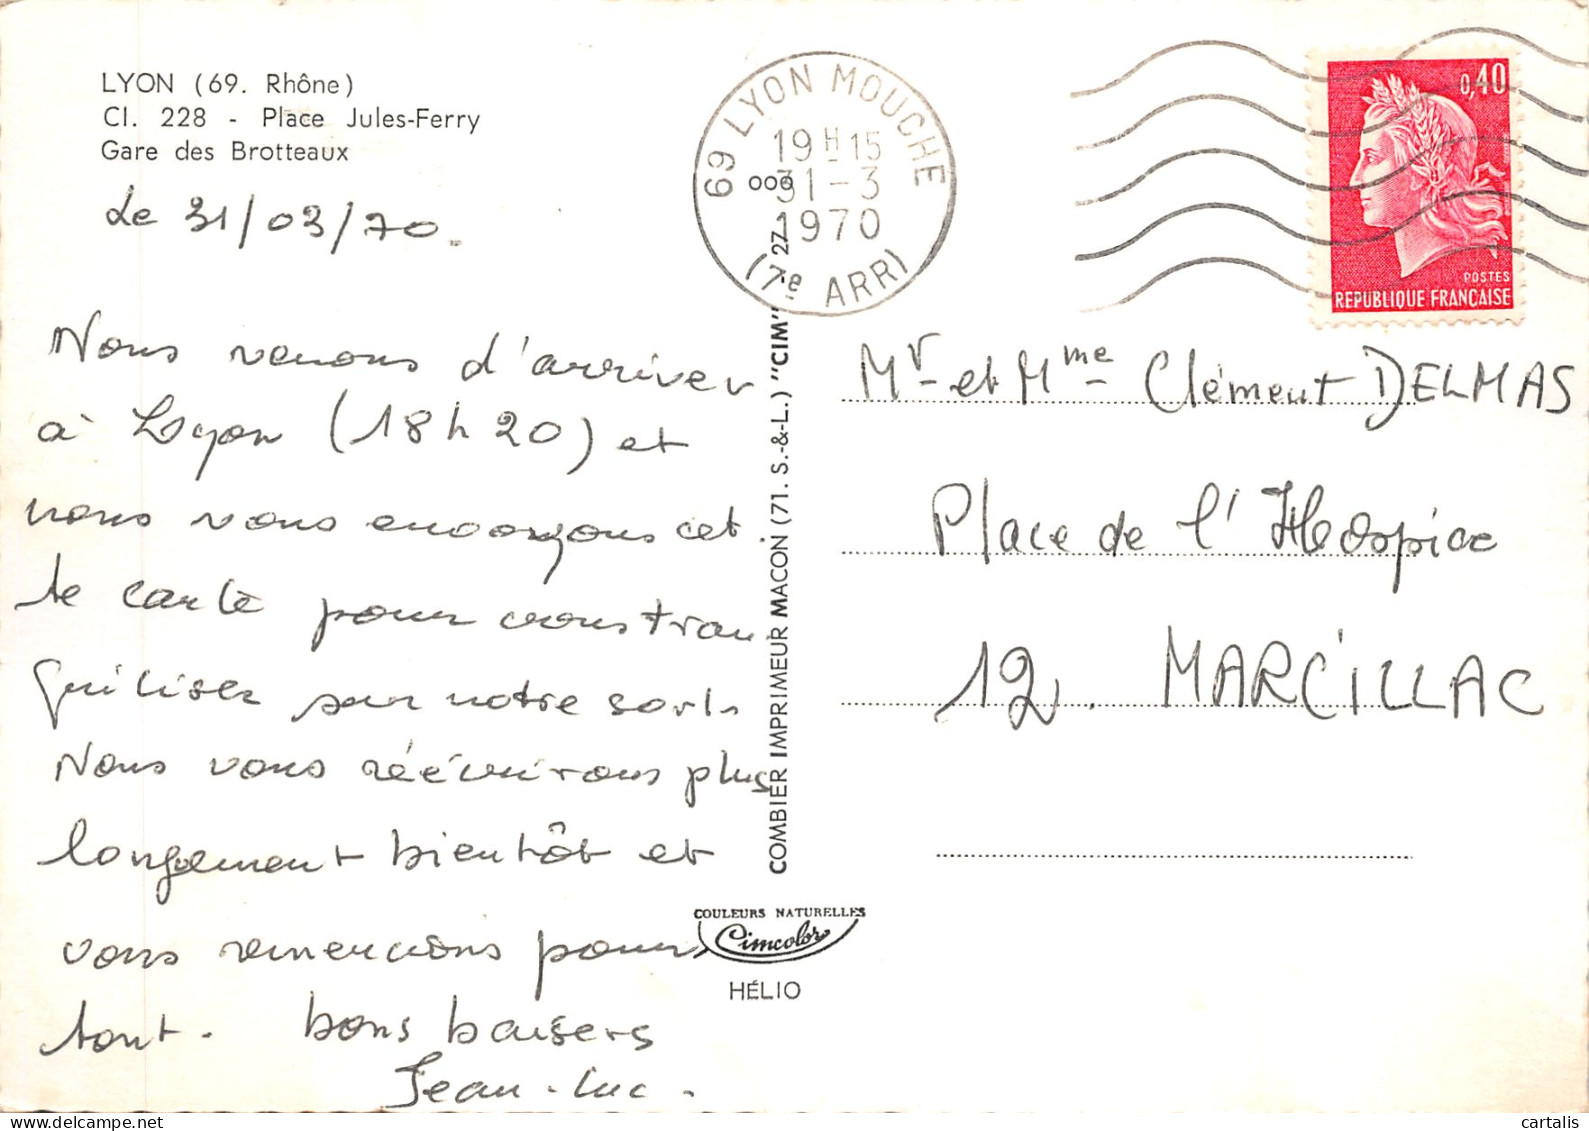 LYON (69. Rhône)
Cl. 228 - Place Jules-Ferry
Gare des Brotteaux
Le 31/03/70.
Nous venons d'arriver
à Lyon (18h20) et
nous vous envoyons cet
te carte pour vous tran
quiliser sur notre sort.
Nous vous réécrirons plus
longuement bientôt et
vous remercions pour
tout. bons baisers
Jean-Luc.
69 LYON MOUCHE
19H15
000
31-3
1970
(7e ARR)
COMBIER IMPRIMEUR MACON (71. S.-&-L.) "CIM"
COULEURS NATURELLES
Cimcolor
HÉLIO
0,40
POSTES
REPUBLIQUE FRANÇAISE
Mr et Mme Clément DELMAS
Place de l'Hospice
12. MARCILLAC
cartalis